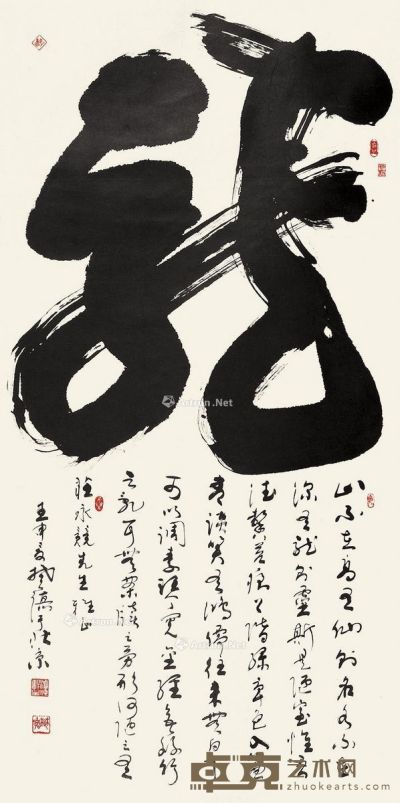 龍
山不在高有仙則名水不在
深有龍則靈斯是陋室惟吾
德馨苔痕上階綠草色入簾
青談笑有鴻儒往來無白丁
可以調素琴閱金經無絲竹
之亂耳無案牘之勞形何陋之有
永競先生雅正
壬申
Artron.Net
卓克艺术网
zhuokearts.com